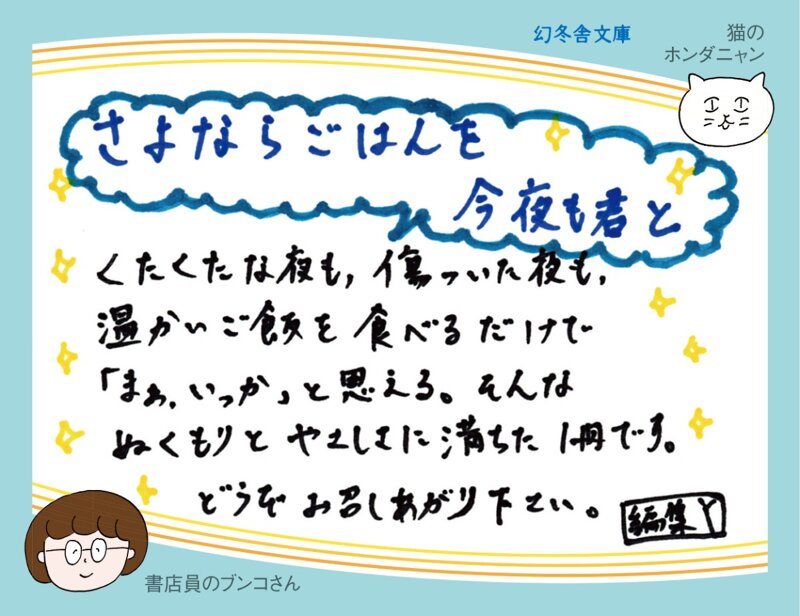 幻冬舎文庫
猫の
ホンダニャン
さよならごはんを
今夜も君と
くたくたな夜も,傷ついた夜も,
温かいご飯を食べるだけで
「まぁ,いっか」と思える。そんな
ぬくもりとやさしさに満ちた1冊です。
どうぞお召しあがり下さい。
編集Y
書店員のブンコさん